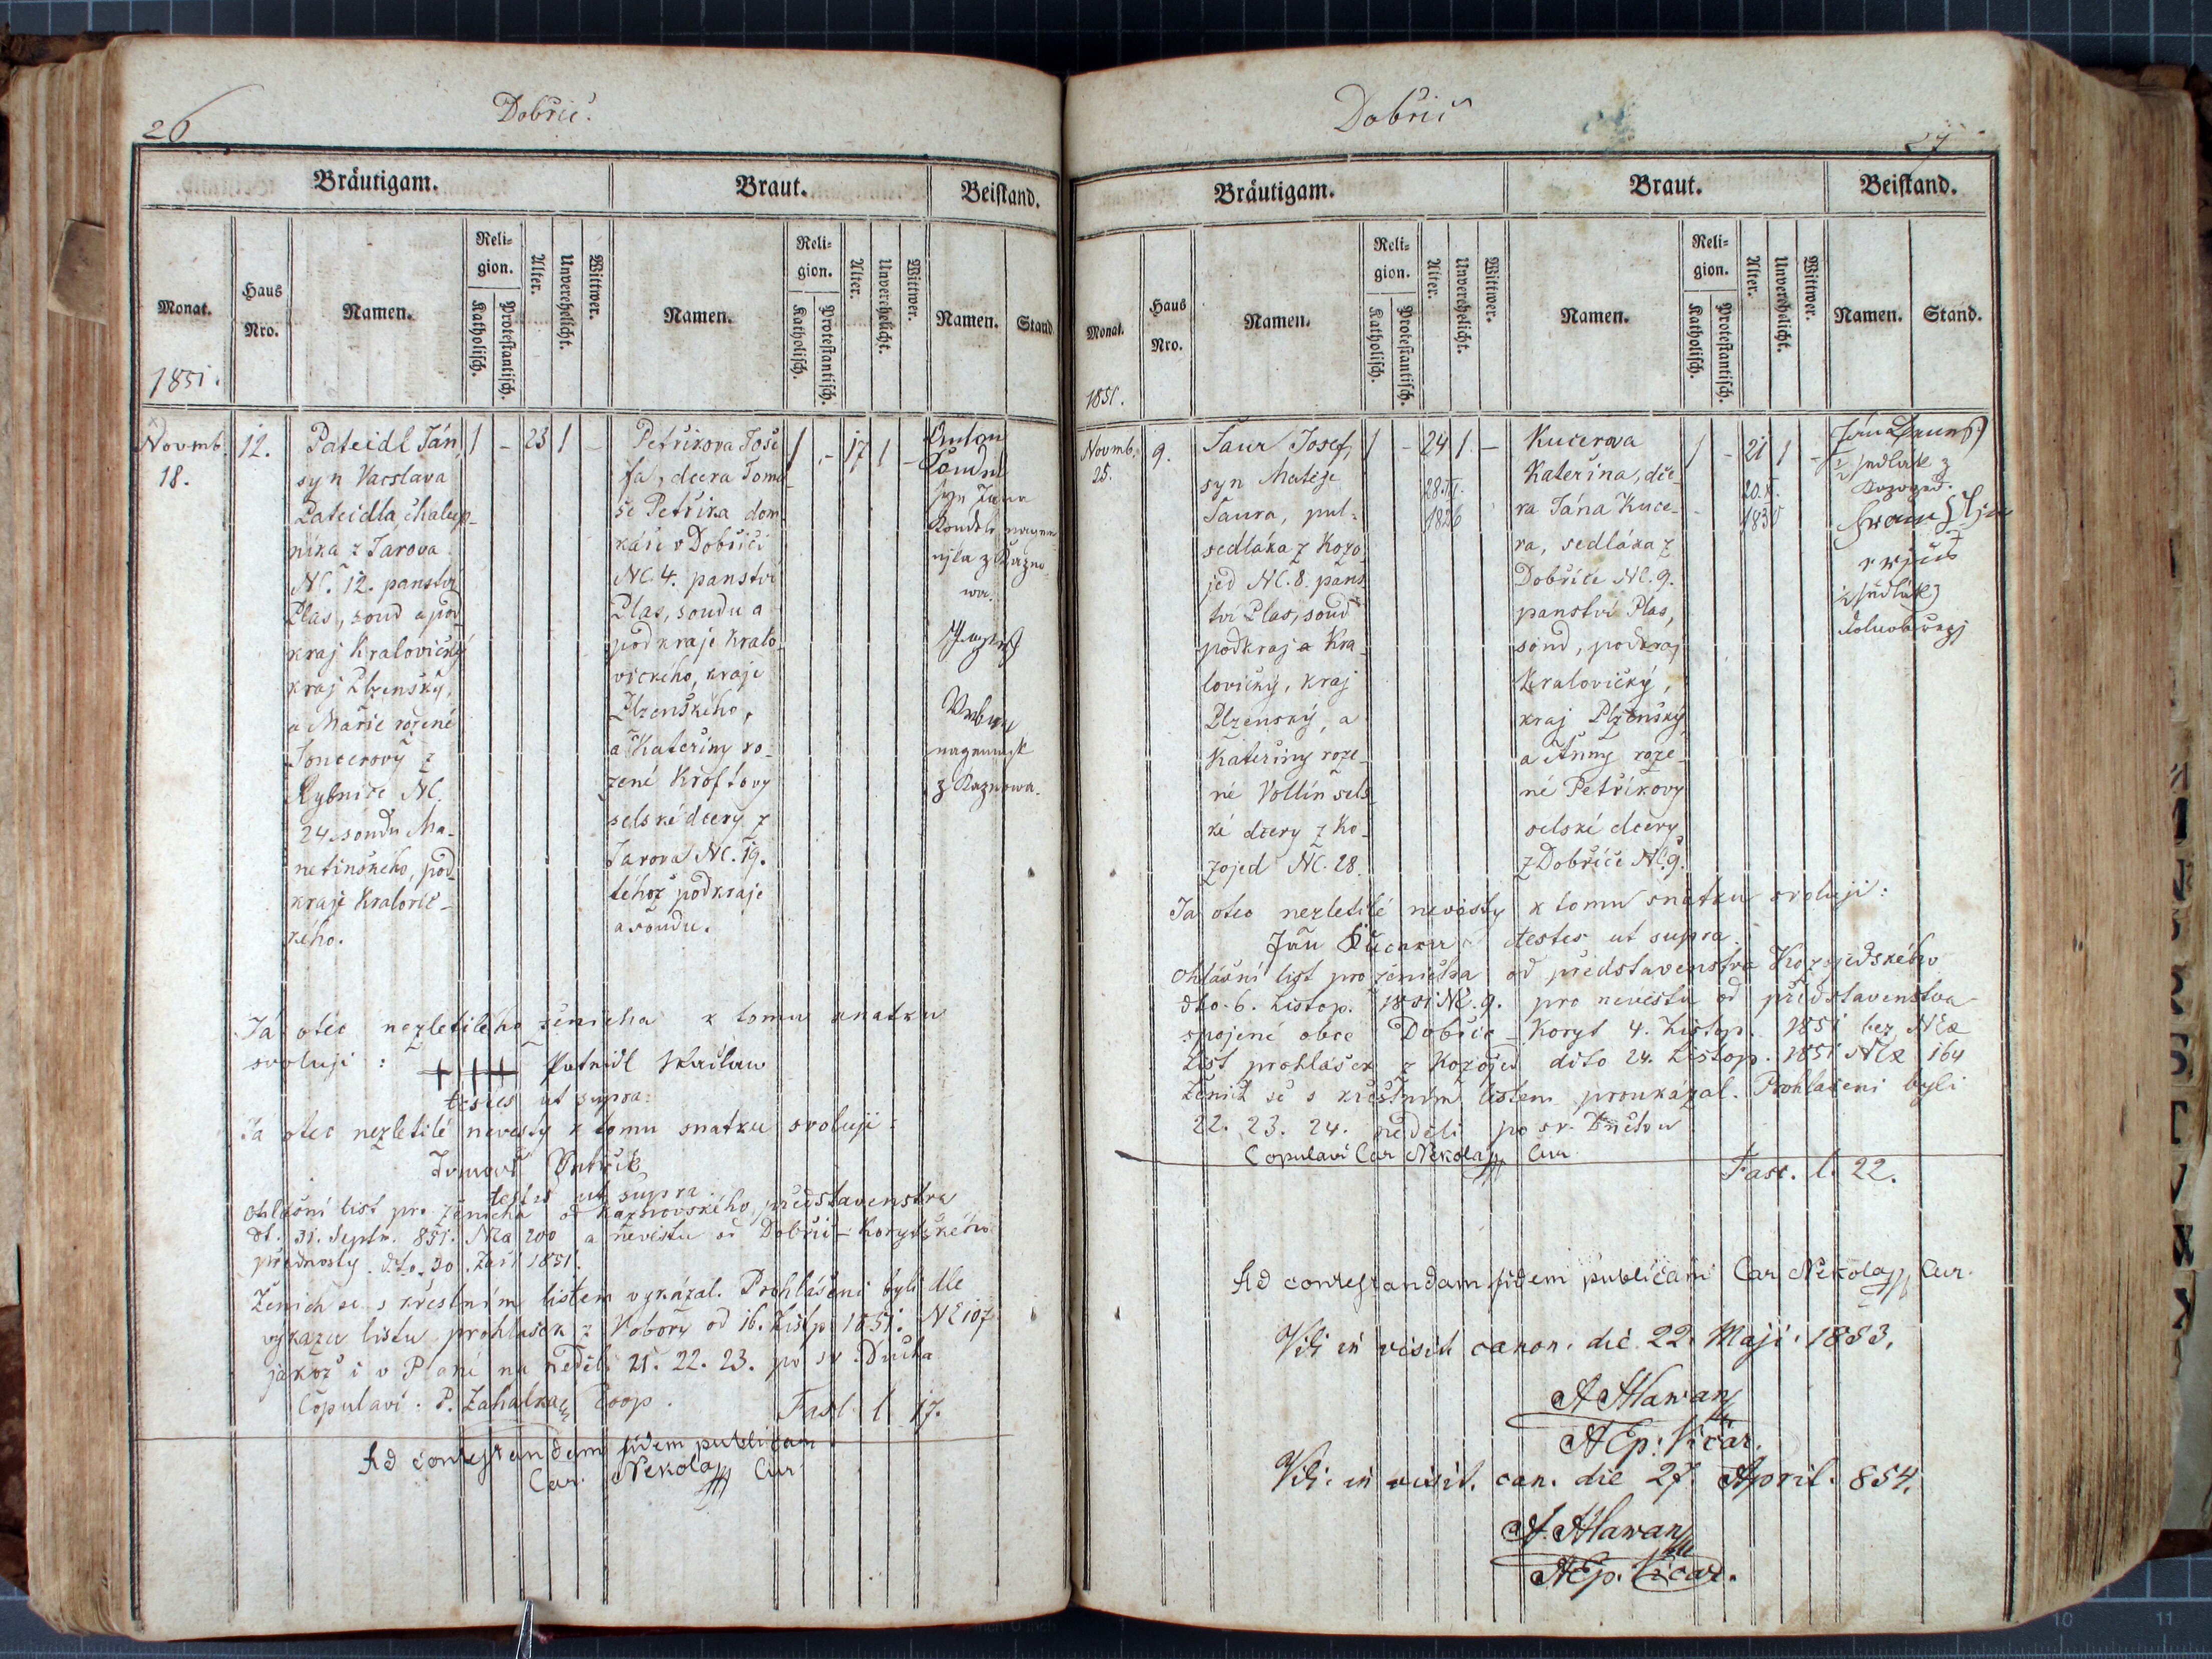 26
Dobřič.
Bräutigam.
Braut.
Beistand.
Monat.
1851.
Haus
Nro.
Namen.
Reli-
gion.
Katholisch.
Protestantisch.
Alter.
Unverehelicht.
Wittwer.
Namen.
Reli-
gion.
Katholisch.
Protestantisch.
Alter.
Unverehelicht.
Wittwer.
Namen.
Stand
Novmb.
18.
12.
Pateidl Ján,
syn Vacslava
Pateidla, chalup-
níka z Jarova
NC. 12. panství
Plas, soud a pod
kraj Kralovický
kraj Plzenský,
a Marie rozené
z
Rybnice NC.
24. soudu Ma-
netinského, pod-
kraje Kralovic-
kého.
1 - 23 1 -
Petříkova Jose
fa, dcera Toma-
še Petříka dom
káře v Dobřiči
NC. 4. panství
Plas, soudu a
podkraje Kralo-
vického, kraje
Plzenského,
a Kateřiny ro-
zené Kroftovy
selské dcery z
Jarova NC. 19.
téhož podkraje
a soudu.
1 - 17 1 -
Anton
syn Jana
z Kazno-
wa.
z Kaznowa.
Já otec nezletilého ženicha k tomu snatku
svoluji : +++ Pateidl
testes ut supra:
Já otec nezletilé nevěsty k tomu snatku svoluji
testes ut supra.
Ohlašní list pro ženicha od Kaznovského představenstva
dt. 31. Septr. 851. Nra 200 a nevěstu od Dobřič-Korytského
přednosty dto. 30. Září 1851.
Ženich se s křestním listem vykázal. Prohlášeni byli dle
výkazu listu prohlášek z Vobory od 16. Listp 1851. NE 107
jakož i v Plané na neděli 21. 22. 23. po sv. Ducha
Copulavi. P. Zahálka Coop.
Fasc. l. 17.
Ad contestandam fidem publicam
Car. Nekola Cur
Dobřič
27
Bräutigam.
Braut.
Beistand.
Monat.
1851.
Haus
Nro.
Namen.
Reli-
gion.
Katholisch.
Protestantisch.
Alter.
Unverehelicht.
Wittwer.
Namen.
Reli-
gion.
Katholisch.
Protestantisch.
Alter.
Unverehelicht.
Wittwer.
Namen.
Stand.
Novmb.
25.
9.
Šaur Josef,
syn Matěje
Šaura, pul-
sedláka z Kozo
jed NC. 8. pans
tví Plas, soud
podkraj a Kra-
lovický, kraj
Plzenský, a
Kateřiny roze-
né Vollín sels-
ké dcery z Ko-
zojed NC. 28.
1 - 24 1 -
1826
Kučerova
Kateřina, dce-
ra Jána Kuče-
ra, sedláka z
Dobříče NC. 9.
panství Plas,
soud, podkraj
Kralovický,
kraj Plzenský
a Anny roze-
né Petříkovy
selské dcery
z Dobříče NC. 9.
1 - 21 1 -
½ sedlák z
Já otec nezletilé nevěsty k tomu snatku svoluji:
Ján testes ut supra.
Ohlašní list pro ženicha od představenstva Kozojedského
dto. 6. Listop. 1851 NC. 9. pro nevěstu od představenstva
spojené obce Dobříč - Koryt 4. Listop. 1851 bez NCa
List prohlášek z Kozojed dito 24. Listop. 1851 NCa 164
Ženich se s křestním listem proukázal. Prohlášeni byli
22. 23. 24. neděli po sv. Duchu
Copulavi Car Nekola Cur
Fasc. l. 22.
Ad contestandam fidem publicam Car Nekola Cur.
Vidi in visit. canon. die 22. Maji. 1853.
A Ep: Vicar.
Vidi in visit. can. die 27 April. 854.
A Ep. Vicar.
10
11